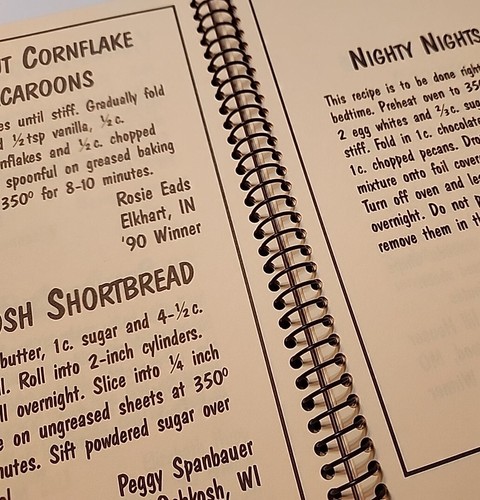 UT CORNFLAKE
CAROONS
es until stiff. Gradually fold
d ½ tsp vanilla, ½ c.
nflakes and ½ c. chopped
spoonful on greased baking
350º for 8-10 minutes.
Rosie Eads
Elkhart, IN
'90 Winner
OSH SHORTBREAD
butter, 1 c. sugar and 4-½ c.
l. Roll into 2-inch cylinders.
ll overnight. Slice into ¼ inch
e on ungreased sheets at 350º
nutes. Sift powdered sugar over
Peggy Spanbauer
Oshkosh, WI
NIGHTY NIGHTS
This recipe is to be done right
bedtime. Preheat oven to 35
2 egg whites and ⅔ c. sug
stiff. Fold in 1 c. chocolat
1 c. chopped pecans. Dro
mixture onto foil cover
Turn off oven and le
overnight. Do not p
remove them in th